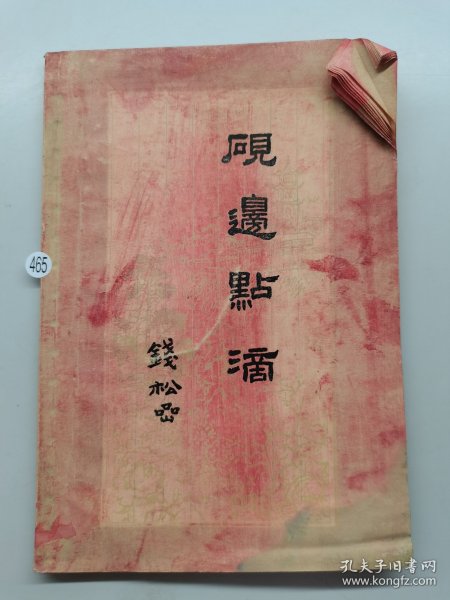 硯邊點滴
錢松嵒
465
孔夫子旧书网
www.kongfz.com